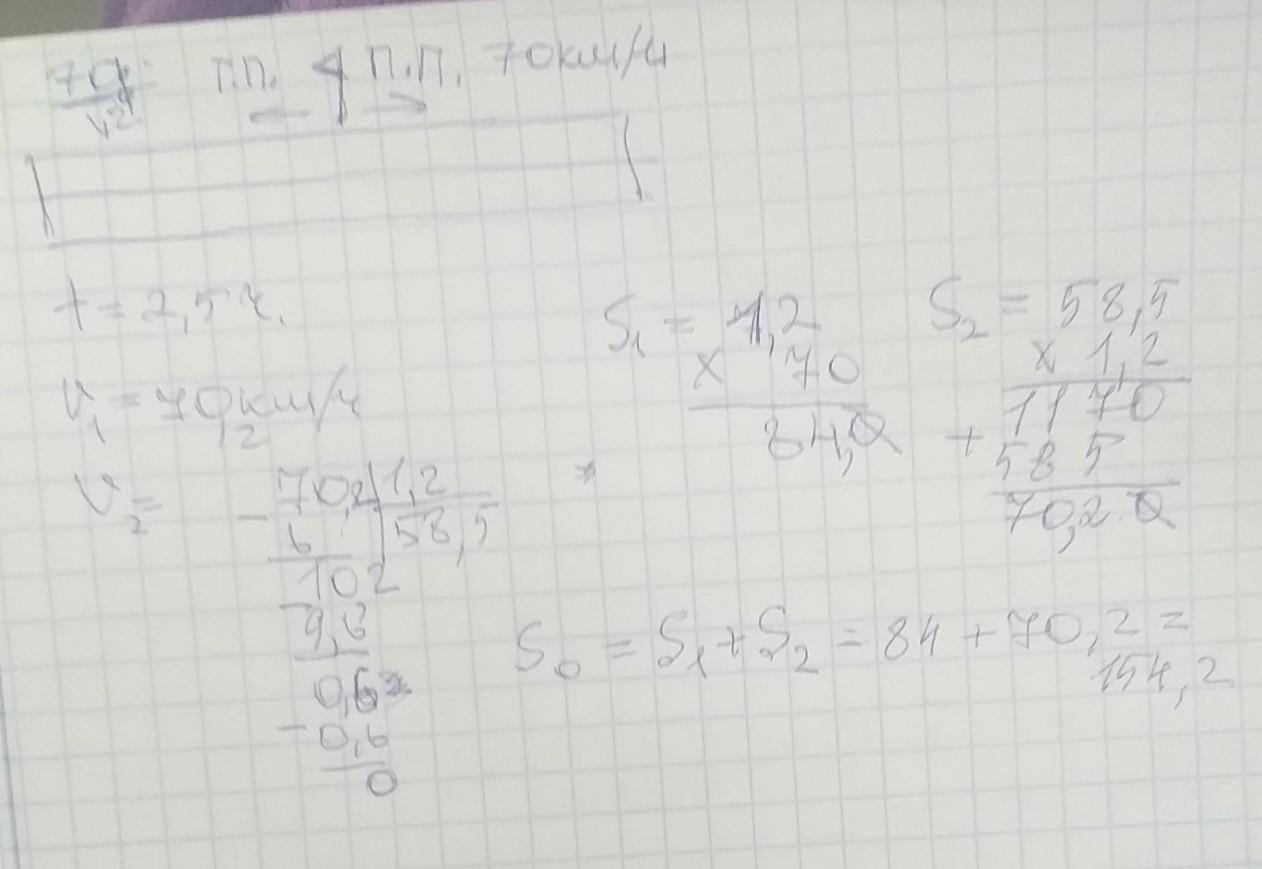 П.П. П.П. 70км/ч
t = 2,5 ч.
V₁ = 70км/ч
1,2
V₂ =
- 70,2 | 1,2
6 | 58,5
102
9,6
0,6
- 0,6
0
S₁ = 1,2
x 70
84,0
S₂ = 58,5
x 1,2
1170
+ 585
70,2 0
S₀ = S₁ + S₂ = 84 + 70,2 =
154,2